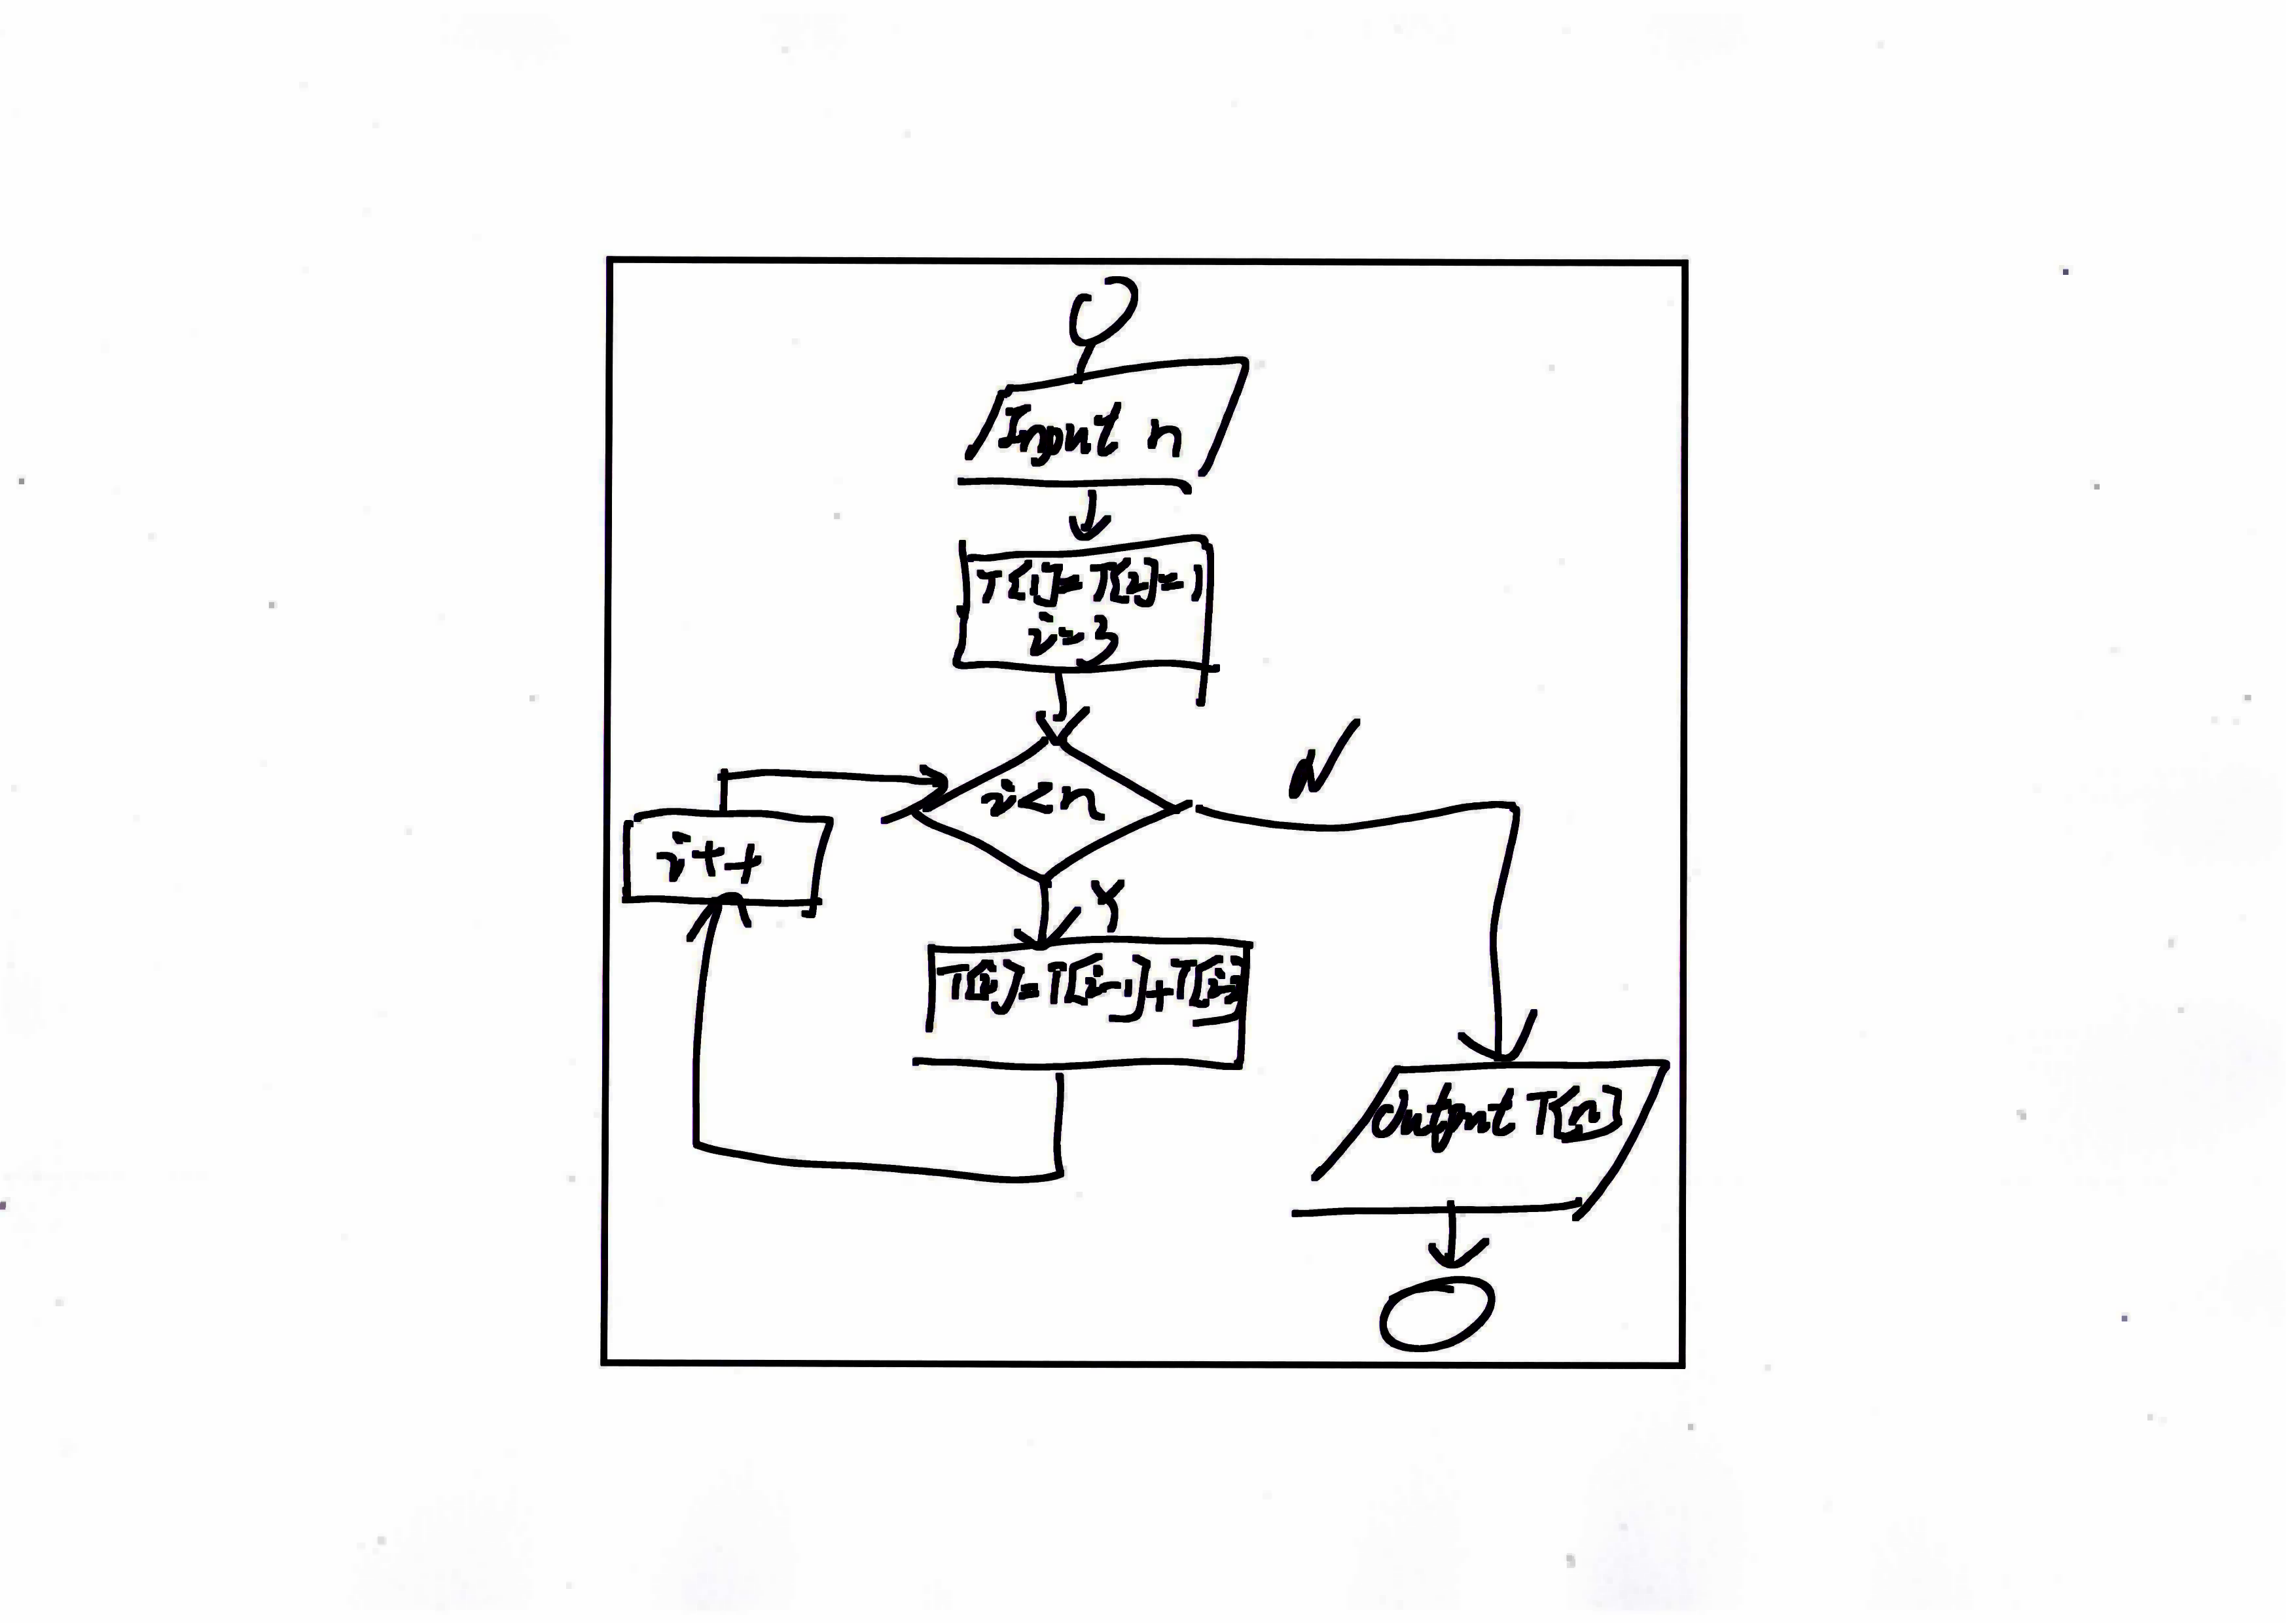 Input n
T[1]=T[2]=1
i=3
i<n
N
i++
Y
T[i]=T[i-1]+
Output T[n]